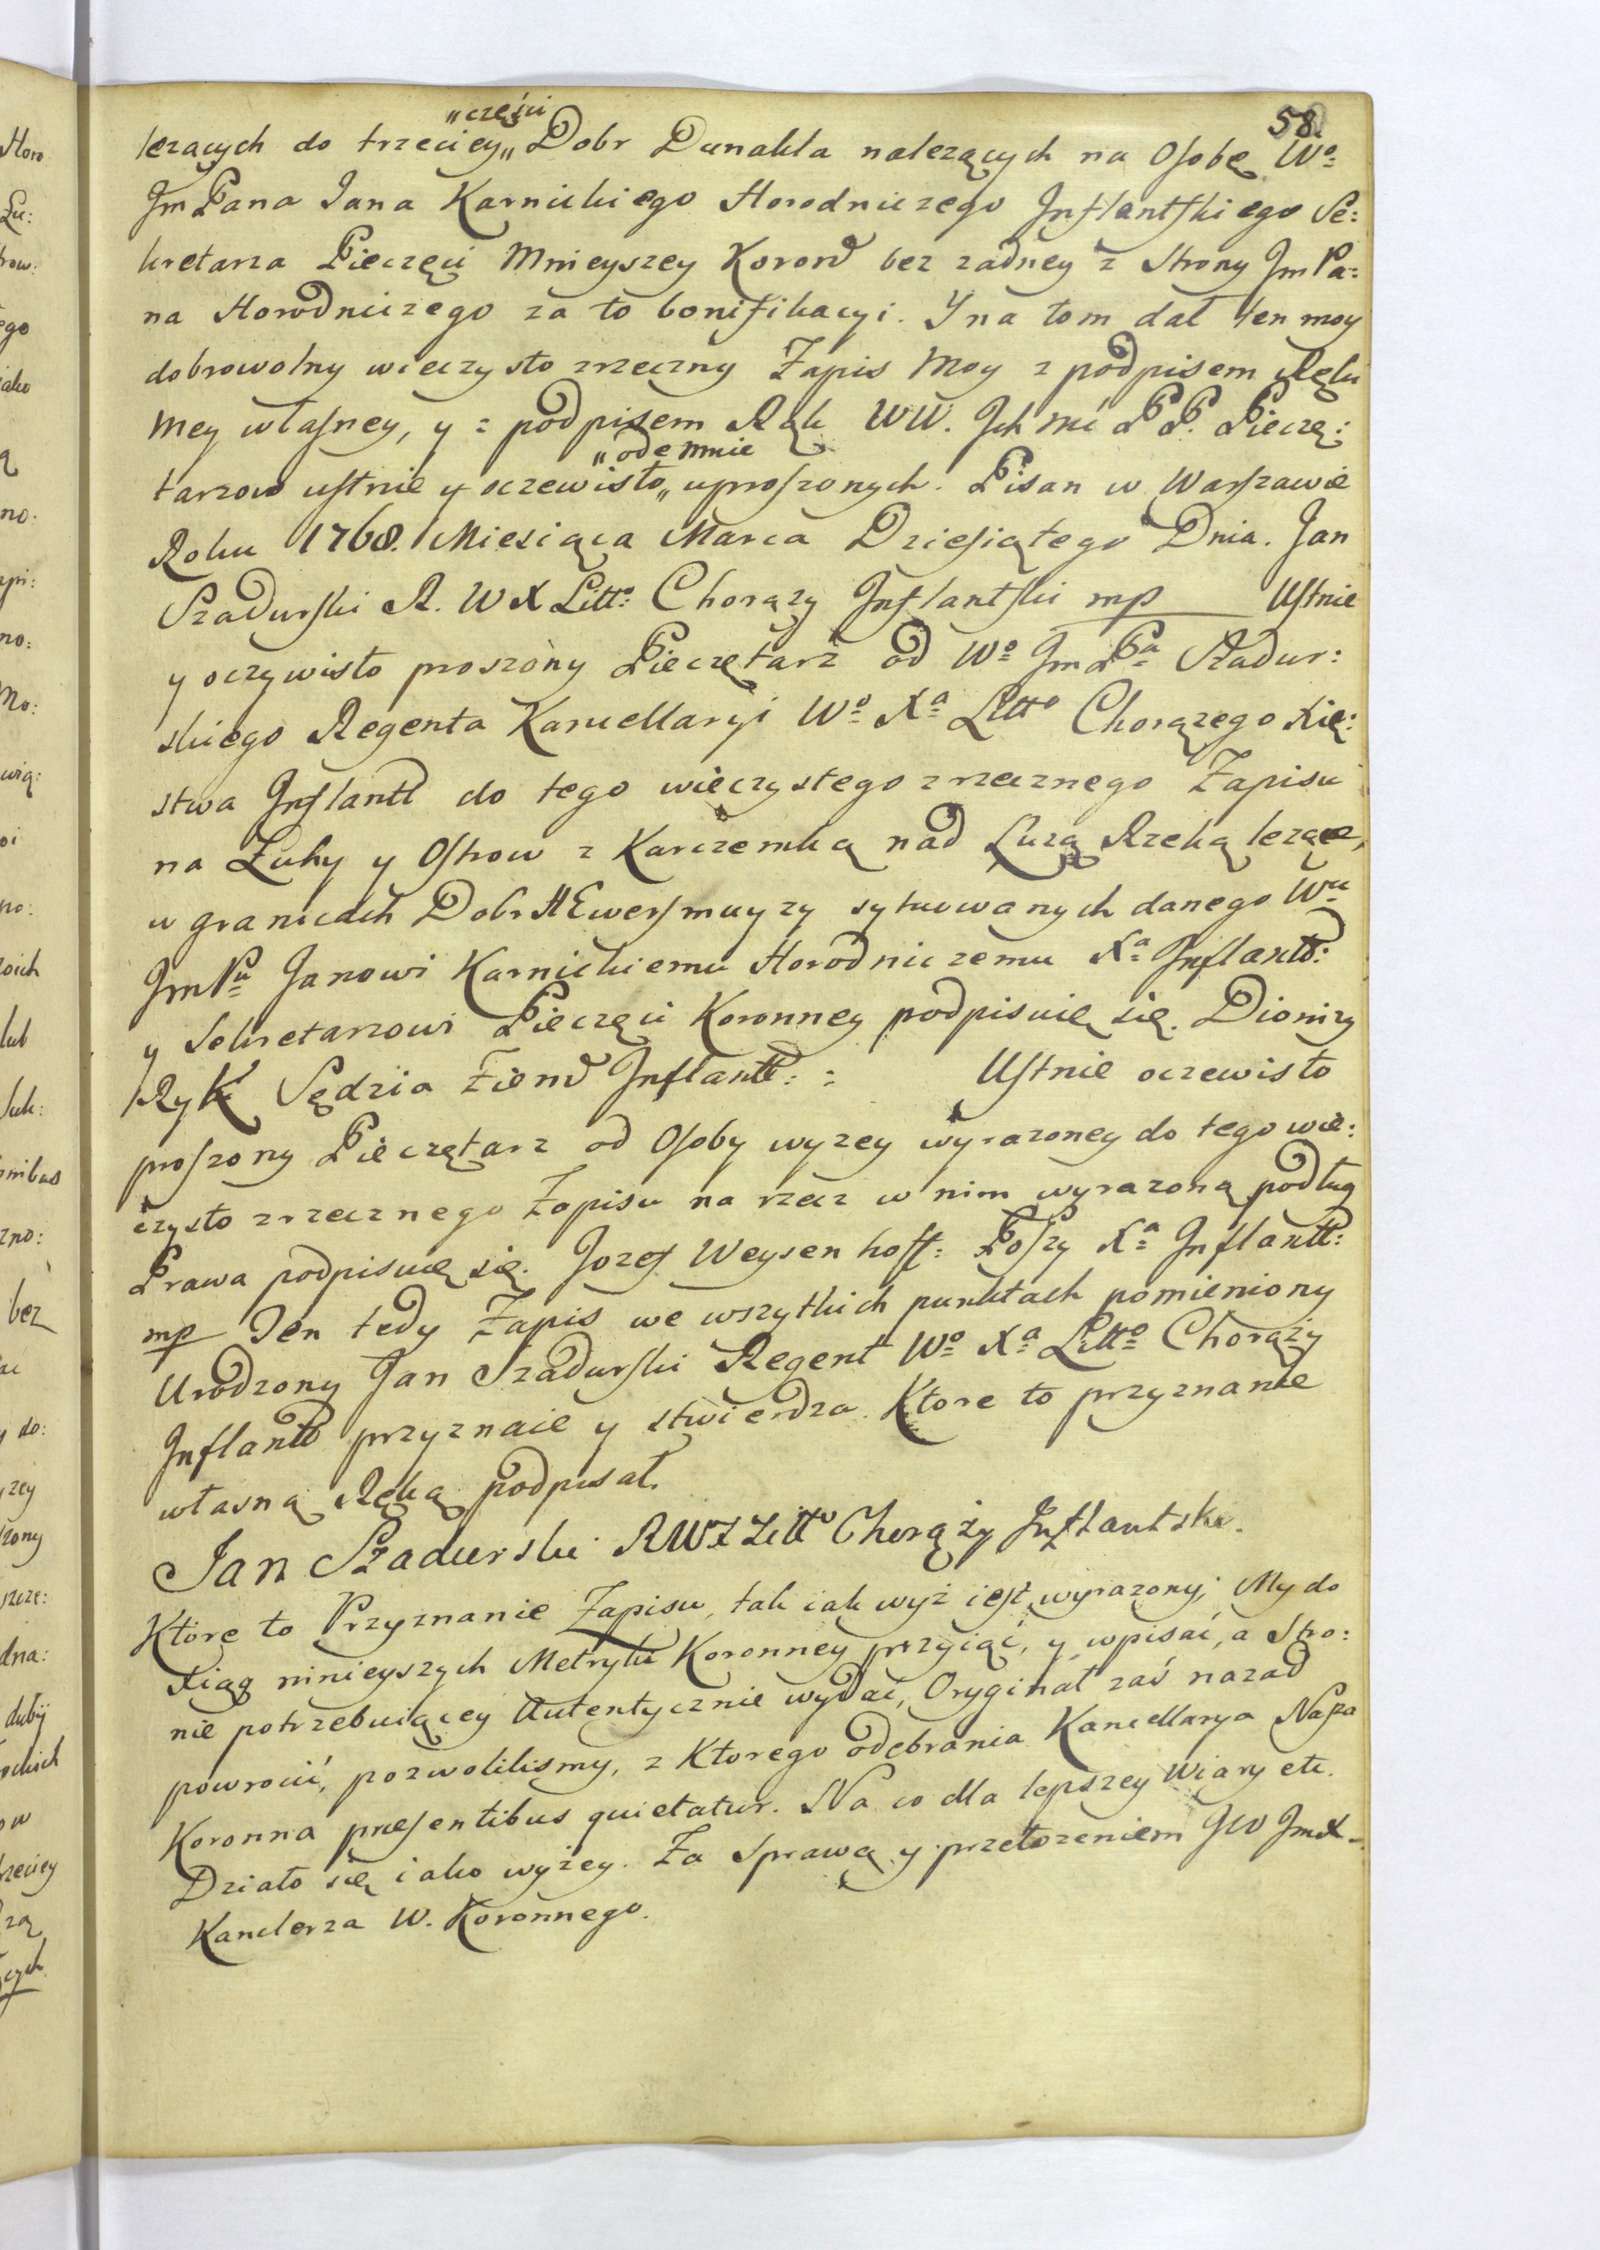 58.
„części
lezących do trzeciey„ Dobr Dunakla nalezących na Osobę Wo=
Jm Pana Jana Karnickiego Horodniczego Inflantskiego Se:
kretarza Pieczęci Mnieyszey Koron bez zadney z Strony Jm Pa:
na Horodniczego za to bonifikacyi. Y na tom dał ten moy
dobrowolny wieczysto zrzeczny Zapis Moy z podpisem Ręki
mey własney, y z podpisem Rąk WW. Jch Mć P.P. Pieczę:
„odemnie
tarzow ustnie y oczewisto„ uproszonych. Pisan w Warszawie
Roku 1768. Miesiąca Marca Dziesiątego Dnia. Jan
Szadurski R. W X Litt: Chorązy Inflantski mp Ustnie
y oczywisto proszony Pieczętarz od Wo Jm Pa Szadur:
skiego Regenta Kancellaryi Wo Xa Litto Chorązego Xię:
stwa Inflantt do tego wieczystego zrzecznego Zapisu
na Łuhy y Ostrow z Karczemką nad Luzą Rzeką lezące,
w granicach Dobr Ewersmuyzy sytuowanych danego Wu
Jm Pu Janowi Karnickiemu Horodniczemu Xa Inflantt:
y Sekretarzowi Pieczęci Koronney podpisuię się. Dionizy
Ryk Sędzia Ziem Inflantt: : Ustnie oczewisto
proszony Pieczętarz od Osoby wyzey wyrazoney do tego wie:
czysto zrzecznego Zapisu na rzecz w nim wyrazoną podług
Prawa podpisuię się. Jozef Weysenhoff: Poszy Xa Inflantt:
mp Ten tedy Zapis we wszytkich punktach pomieniony
Urodzony Jan Szadurski Regent Wo Xa Litto Chorązy
Inflantt przyznaie y stwierdza. Ktore to przyznanie
własną Ręką podpisał.
Jan Szadurski RWXLitto Chorąży Inflantski.
Ktore to Przyznanie Zapisu, tak iak wyż iest wyrazony, My do
Xiąg ninieyszych Metryki Koronney przyiąć, y wpisać, a Stro:
nie potrzebuiącey Autentycznie wydać, Oryginał zaś nazad
powrocić, pozwolilismy, z Ktorego odebrania Kancellarya Nasza
Koronna præsentibus quietatur. Na co dla lepszey Wiary etc.
Działo się iako wyżey. Za Sprawą y przełozeniem JW Jmć
Kanclerza W. Koronnego.